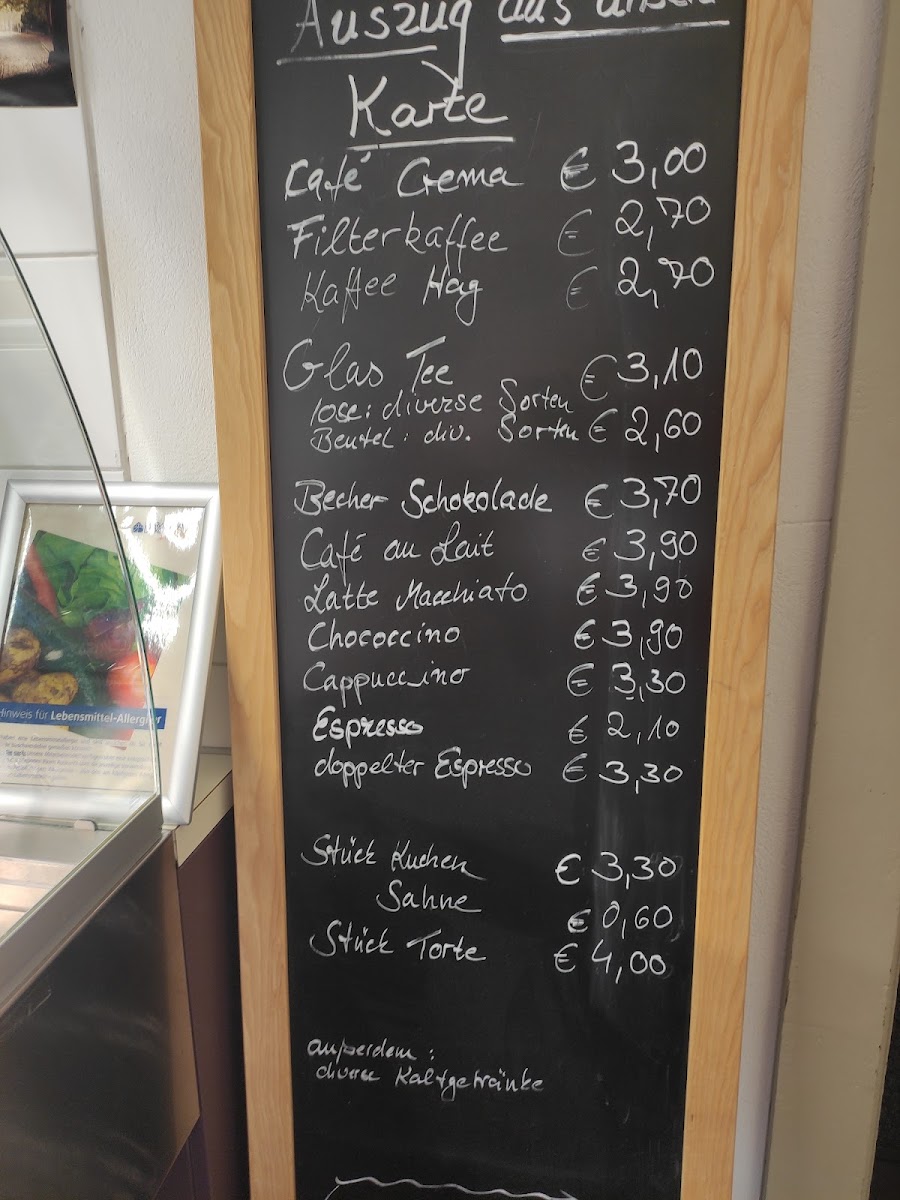 Auszug aus unserer
Karte
Café Crema € 3,00
Filterkaffee € 2,70
Kaffee Hag € 2,70
Glas Tee
lose: diverse Sorten € 3,10
Beutel: div. Sorten € 2,60
Becher Schokolade € 3,70
Café au Lait € 3,90
Latte Macchiato € 3,90
Chococcino € 3,90
Cappuccino € 3,30
Espresso € 2,10
doppelter Espresso € 3,30
Stück Kuchen € 3,30
Sahne € 0,60
Stück Torte € 4,00
außerdem:
diverse Kaltgetränke
Hinweis für Lebensmittel-Allergiker